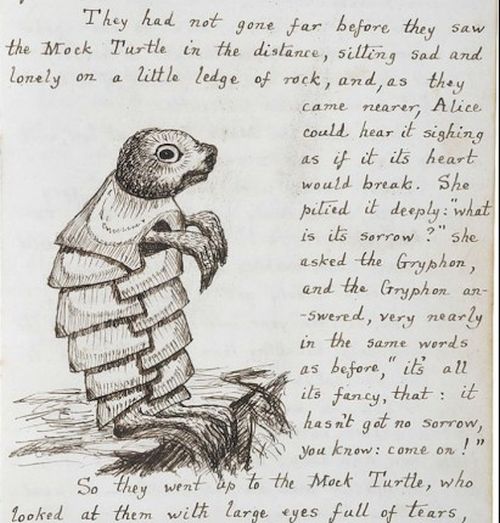 They had not gone far before they saw
the Mock Turtle in the distance, sitting sad and
lonely on a little ledge of rock, and, as they
came nearer, Alice
could hear it sighing
as if it its heart
would break. She
pitied it deeply: "what
is its sorrow?" she
asked the Gryphon,
and the Gryphon an-
-swered, very nearly
in the same words
as before, "it's all
its fancy, that: it
hasn't got no sorrow,
you know: come on!"
So they went up to the Mock Turtle, who
looked at them with large eyes full of tears,